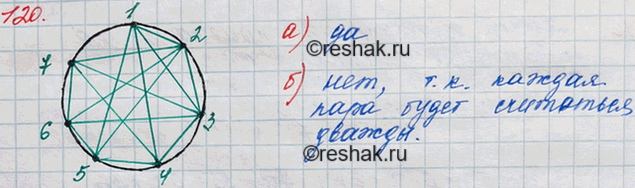 120.
1
2
3
4
5
6
7
а) да
©reshak.ru
б) нет, т.к. каждая
пара будет считаться
дважды.
©reshak.ru